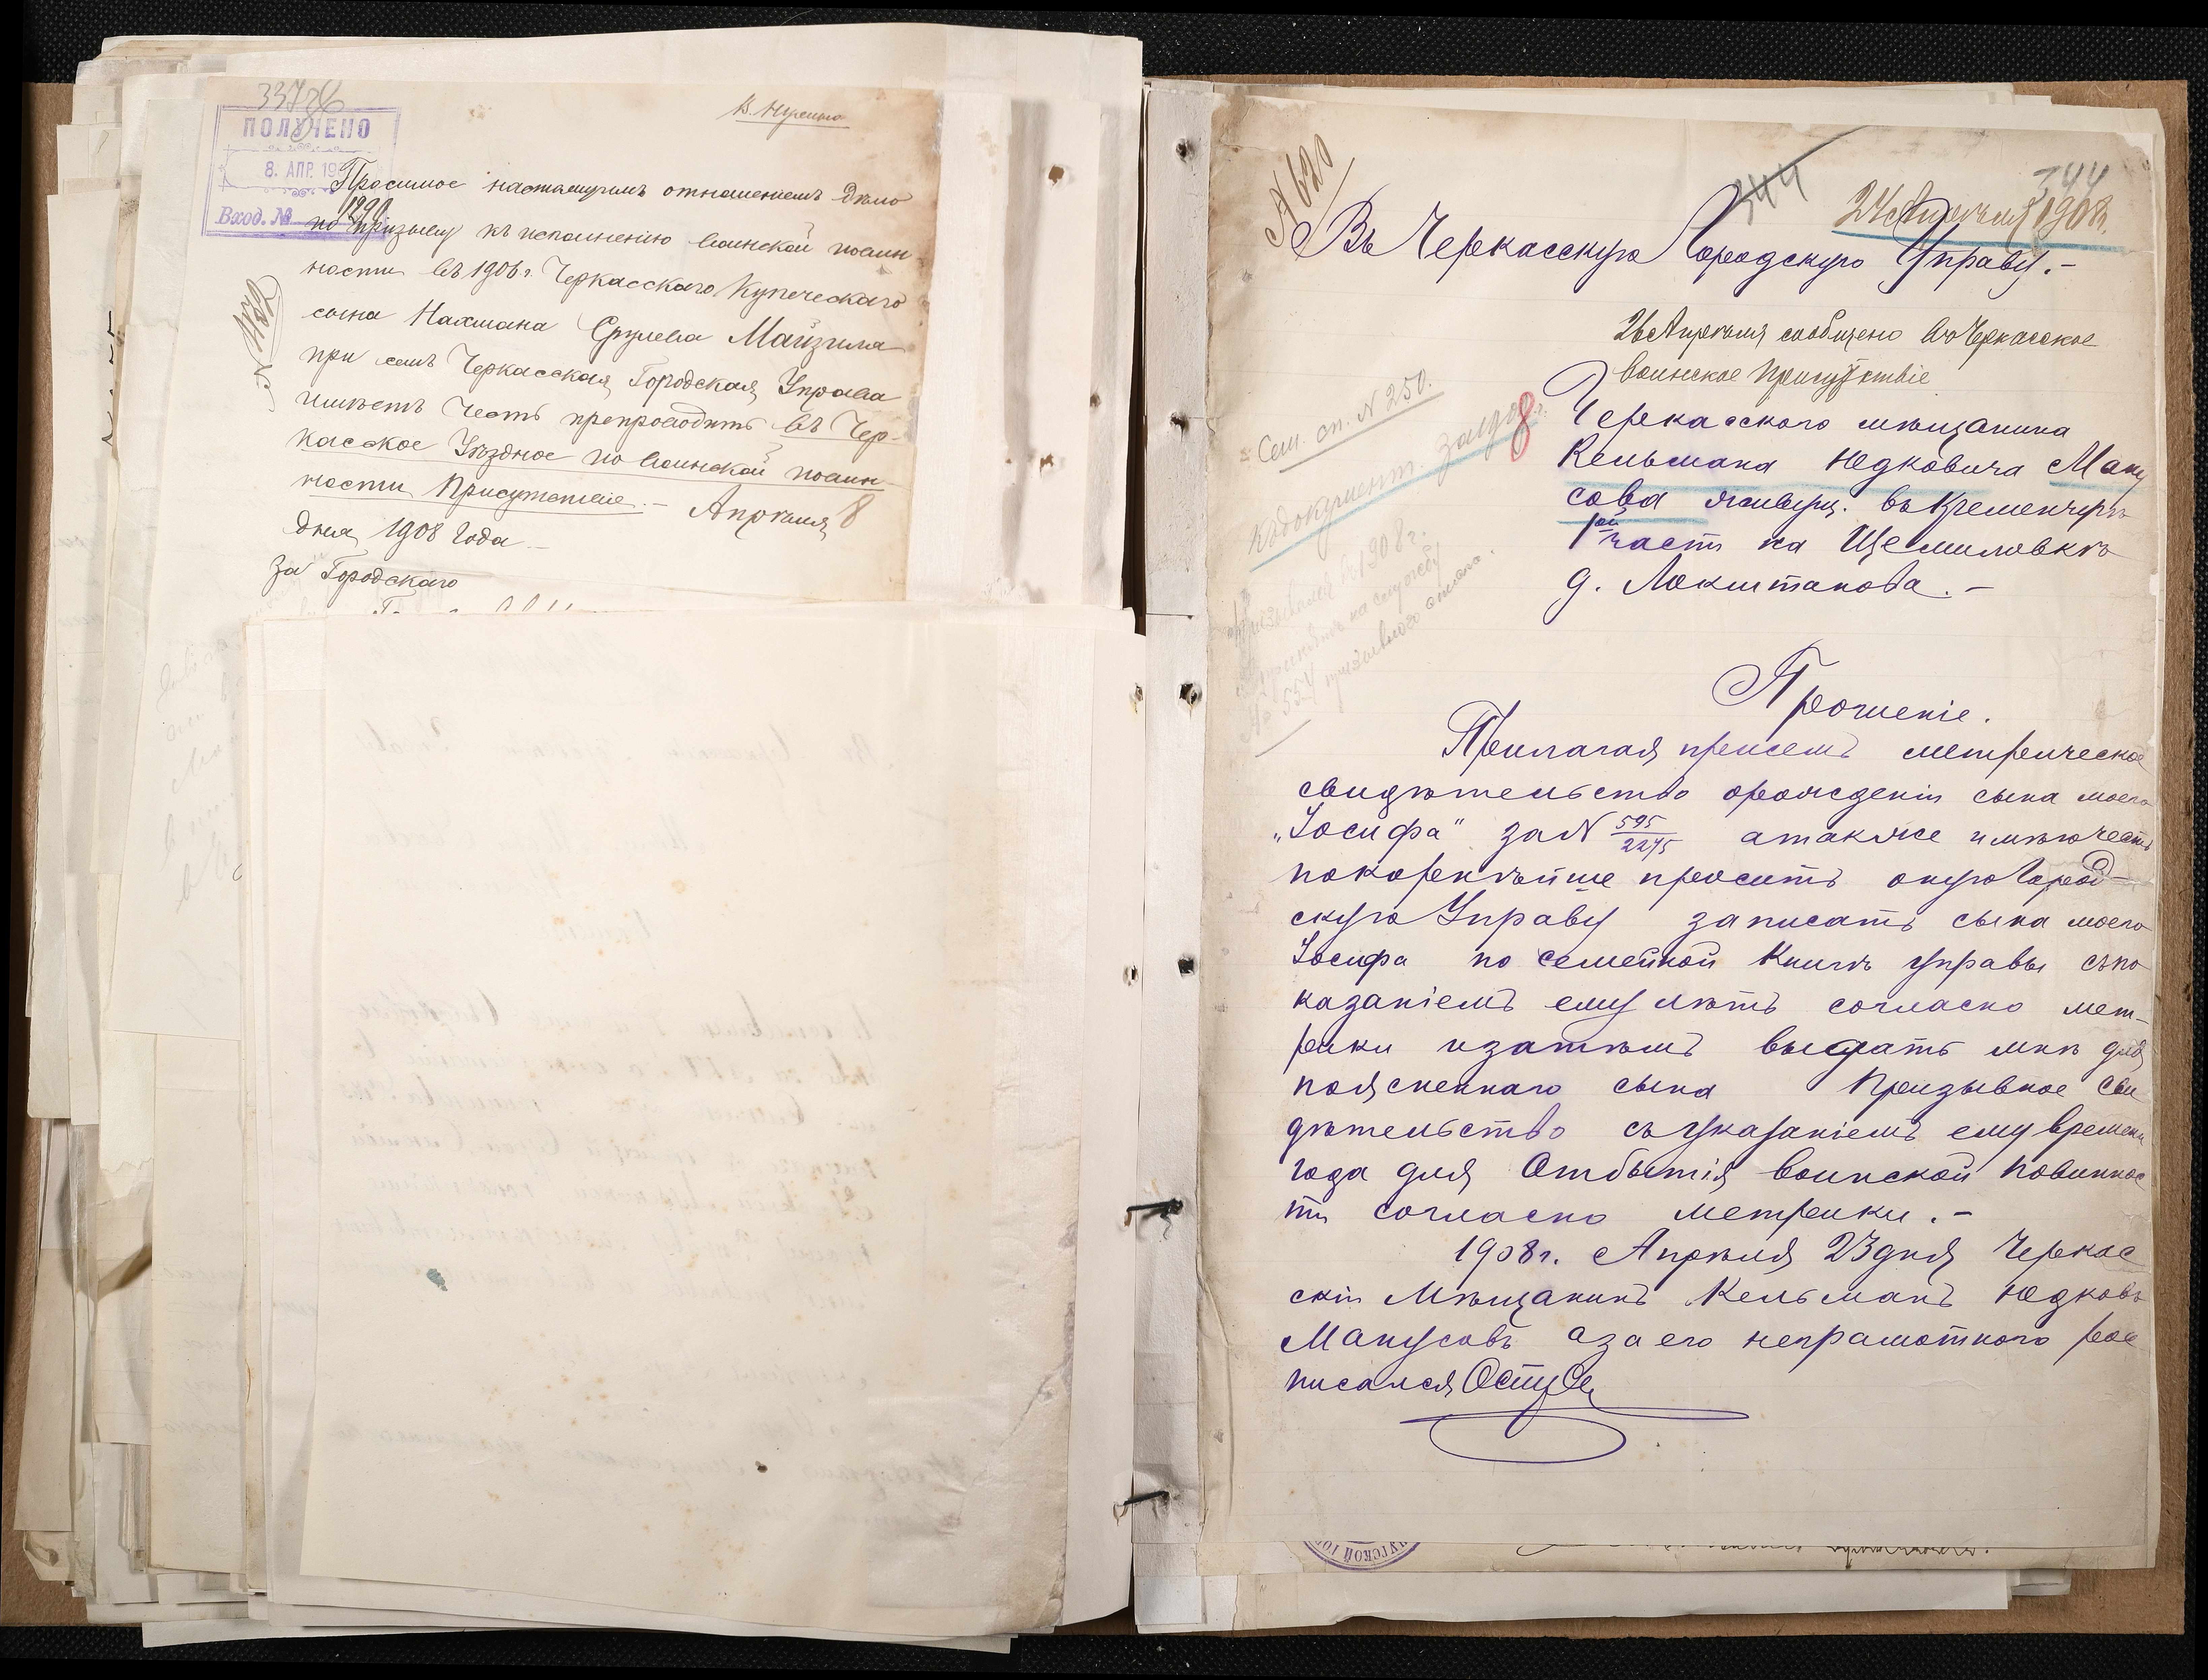 ПОЛУЧЕНО
8. АПР. 19
Вход. №
1290
Просимое настоящимъ отношеніемъ дѣло
по призыву къ исполненію воинской повин-
ности въ 1906 г. Черкасскаго Купеческаго
сына Нахмана Срулева Майзиля
при семъ Черкасская Городская Управа
имѣетъ честь препроводить въ Чер-
касское Уѣздное по воинской повин-
ности Присутствіе. - Апрѣля 8
дня 1908 года
За Городского
№ 620
344
344
24 Апрѣля 1908 г.
Въ Черкасскую Городскую Управу. -
26 Апрѣля сообщено въ Черкасское
воинское Присутствіе
Сем. сп. № 250.
Къ документ. за 1908 г.
Черкасского мѣщанина
Кельмана Юдковича Ману
сова живущ. въ Кременчугѣ
1ой часть на Щемиловкѣ
д. Локштанова. -
Прошеніе.
Прилагая присемъ метрическое
свидѣтельство орожденіи сына моего
„Іосифа" за N 595/2275 атакже имѣю честь
покорнѣйше просить оную Город-
скую Управу записать сына моего
Іосифа по семейной Книгѣ управы съпо
казаніемъ ему лѣтъ согласно мет-
рики изатѣмъ выдать мнѣ для
поясненнаго сына Призывное Сви
дѣтельство съуказаніемъ ему времени
года для Отбытія воинской повиннос
ти согласно метрики. -
1908 г. Апрѣля 23 дня Черкас
скій Мѣщанинъ Кельманъ Юдковъ
Манусовъ аза его неграмотного рос
писался